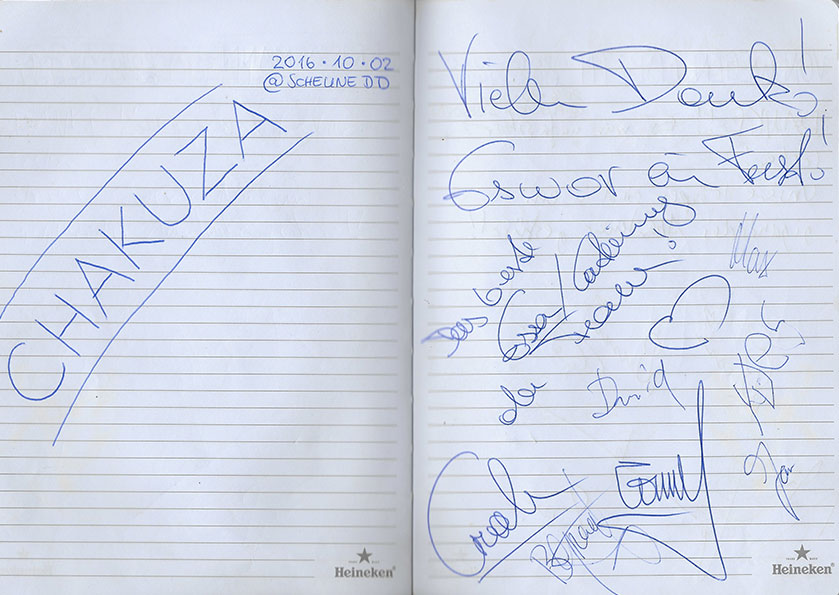 2016.10.02
@SCHEUNE DD
CHAKUZA
Heineken
Vielen Dank!
Es war ein Fest!
Das beste
Essen/Catering
der Tour!
Max
David
Heineken